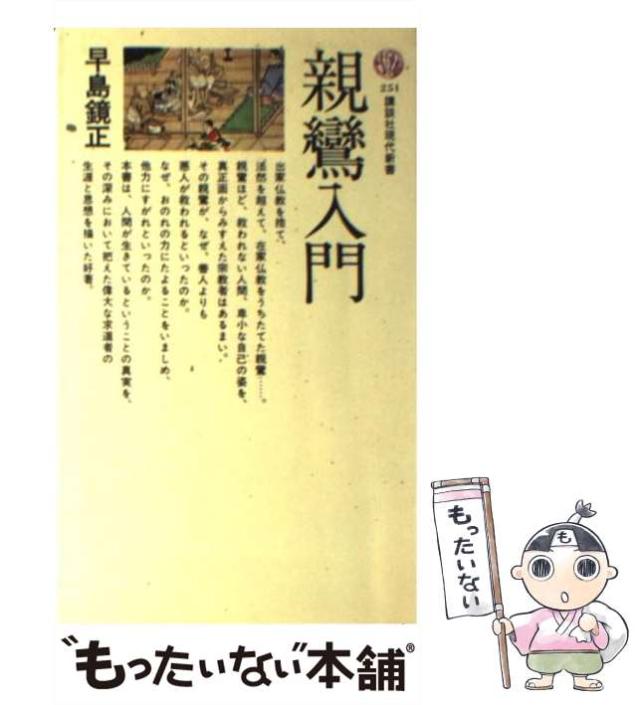 251
講談社現代新書
親鸞入門
早島鏡正
出家仏教を捨て、
法然を超えて、在家仏教をうちたてた親鸞……。
親鸞ほど、救われない人間、卑小な自己の姿を、
真正面からみすえた宗教者はあるまい。
その親鸞が、なぜ、善人よりも
悪人が救われるといったのか。
なぜ、おのれの力にたよることをいましめ、
他力にすがれといったのか。
本書は、人間が生きているということの真実を、
その深みにおいて把えた偉大な求道者の
生涯と思想を描いた好著。
もったいない
も
"もったいない"本舗®